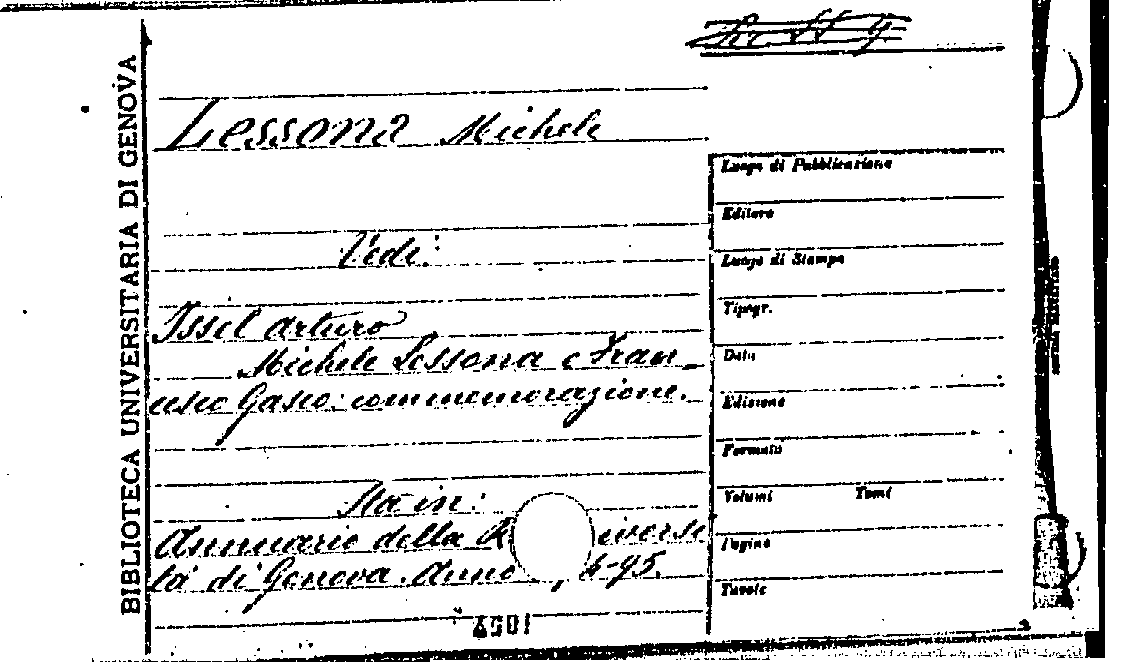 BIBLIOTECA UNIVERSITARIA DI GENOVA
Lessona Michele
Vedi:
Issel Arturo
Michele Lessona e Fran
cesco Gasco: commemorazione.
Sta in:
Annuario della R iversi
tà di Genova. Anno 4-95.
Luogo di Pubblicazione
Editore
Luogo di Stampa
Tipogr.
Data
Edizione
Formato
Volumi Tomi
Pagine
Tavole